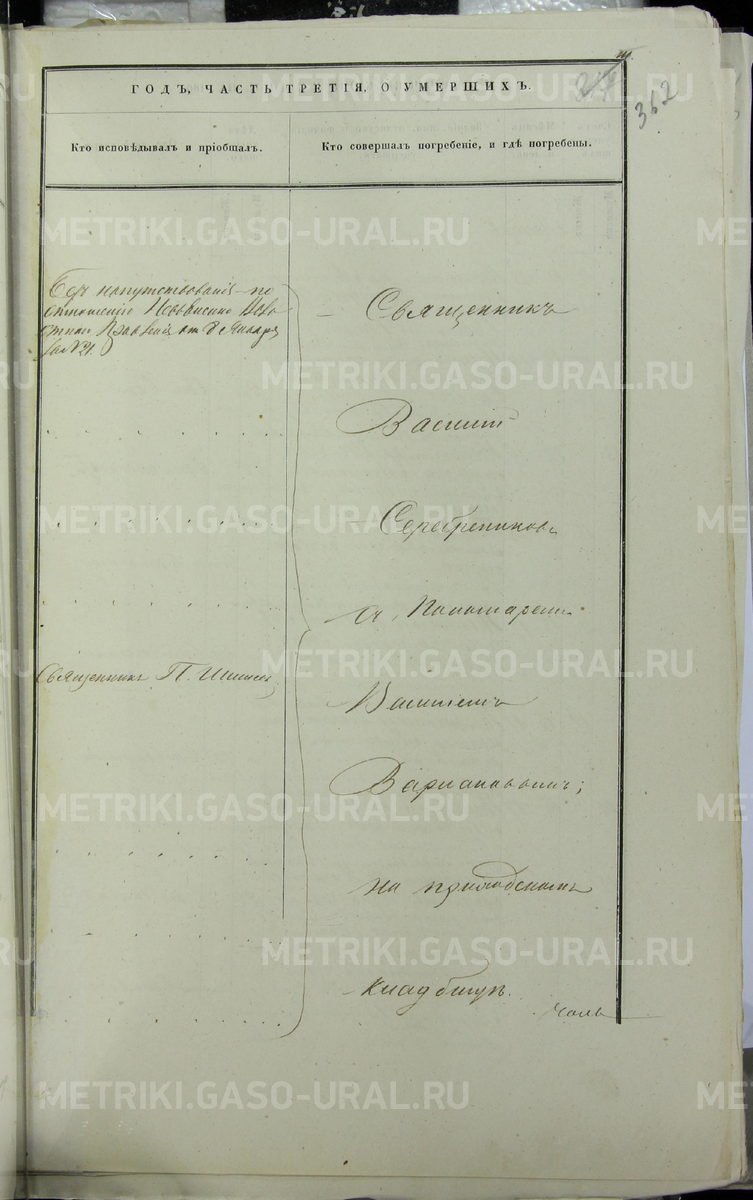 362
ГОДЪ, ЧАСТЬ ТРЕТІЯ, О УМЕРШИХЪ.
Кто исповѣдывалъ и пріобщалъ.
Кто совершалъ погребеніе, и гдѣ погребены.
Безъ напутствованія по
отношенію
отъ 8 Января
за № 21.
Священникъ П.
Священникъ
Василій
Серебрениковъ
съ Пономаремъ
Василіемъ
на приходскомъ
кладбищѣ.
METRIKI.GASO-URAL.RU